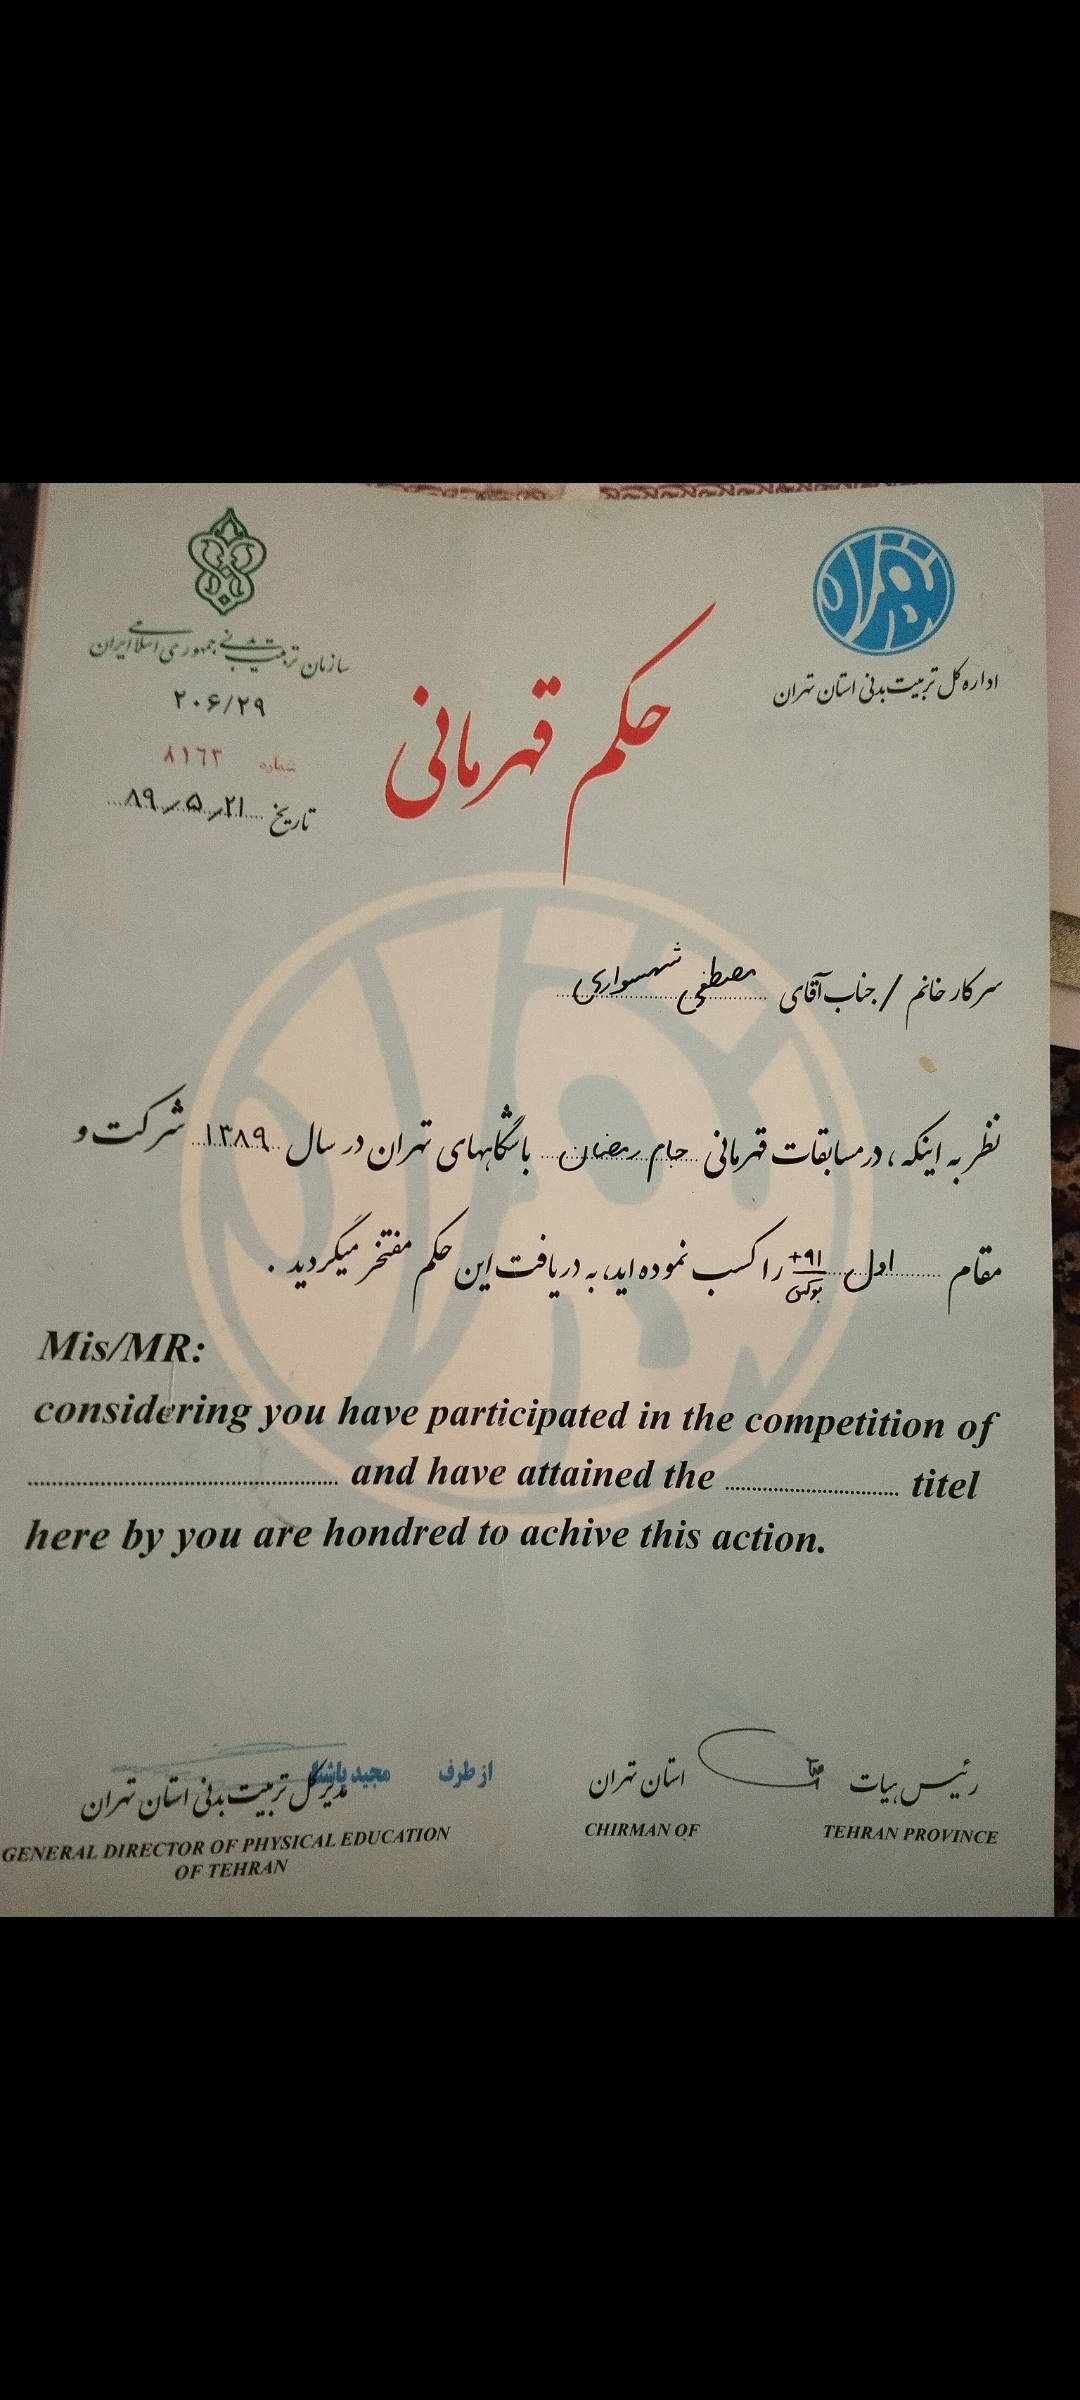 تهران
اداره کل تربیت بدنی استان تهران
سازمان تربیت بدنی جمهوری اسلامی ایران
۲۰۶/۲۹
شماره ۸۱۶۳
تاریخ ۸۹/۵/۲۱
حکم قهرمانی
سرکار خانم / جناب آقای مصطفی شهسواری
نظر به اینکه، در مسابقات قهرمانی جام رمضان باشگاههای تهران در سال ۱۳۸۹ شرکت و
مقام اول +۹۱ بوکس را کسب نموده اید، به دریافت این حکم مفتخر میگردید.
Mis/MR:
considering you have participated in the competition of
and have attained the titel
here by you are hondred to achive this action.
رئیس هیات استان تهران
CHIRMAN OF TEHRAN PROVINCE
از طرف مجید باشتا
مدیر کل تربیت بدنی استان تهران
GENERAL DIRECTOR OF PHYSICAL EDUCATION
OF TEHRAN